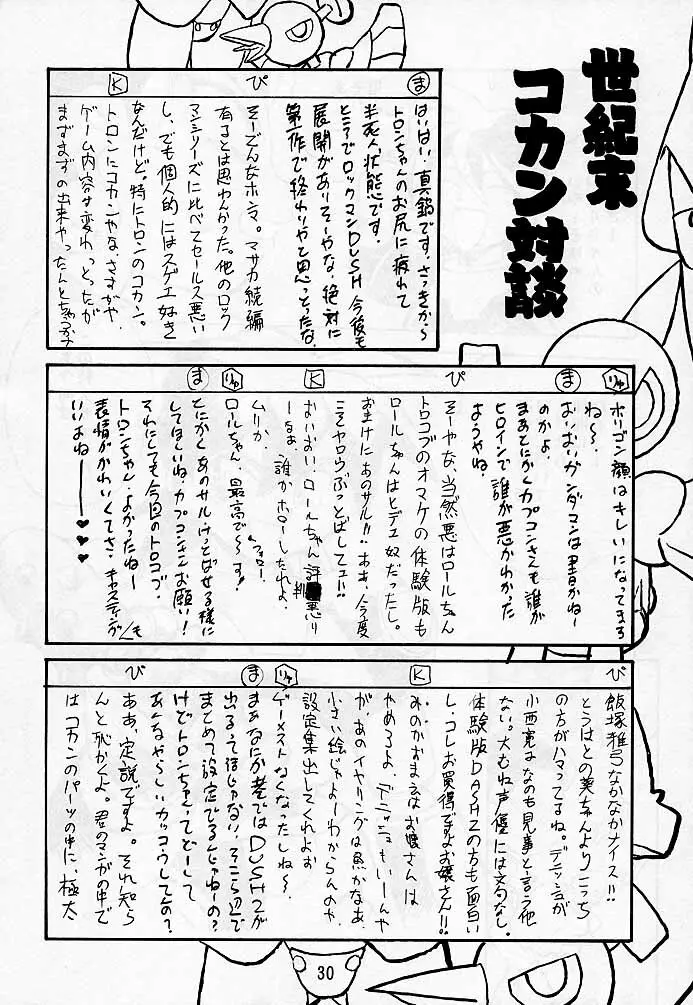 世紀末
コカン対談
ま
はいはい、真鍋です。さっきから
トロンちゃんのお尻に疲れて
半死人状態です。
ところでロックマンDUSH今後も
展開がありそーやな、絶対に
第一作で終わりやと思っとったな。
ぴ
そーどんなホンマ。マサカ続編
有るとは思わんかった。他のロック
マンシリーズに比べてセールス悪い
し、でも個人的にはスゲエ好き
なんだけど。特にトロンのコカン。
K
トロンにコカンやな、さすがや、
ゲーム内容は変わっとったが
まずまずの出来やったんとちゃうか
りゅ
ポリゴン顔はキレイになってまる
ね〜。
ま
おいおいガンダマンは男かね〜
のかよ。
まあとにかくカプコンさんも誰が
ヒロインで誰が悪かわかった
ようやね。
ぴ
そーやな、当然悪はロールちゃん
トロコブのオマケの体験版も
ロールちゃんはヒデェ奴だったし。
おまけにあのサル!!ああ、今度
こそヤロウぶっとばしてェ!!
K
おいおい、ロールちゃん評判悪い
なぁ、誰かホローしたれよ。
りゅ
ムリか
ロールちゃん、最高で〜す!!
フォロー
ま
とにかくあのサルけっとばせる様に
してほしいね。カプコンさんお願い!
それにしても今回のトロコブ
トロンちゃん、よかったねー
表情がかわいくてさ、キャスティングも
いいよねー♥♥♥
ぴ
飯塚雅弓なかなかナイス!!
とうはとの美ちゃんよりこっち
の方がハマってるね。デニッシュが
小西寛はなのも見事と言う他
ない。大むね声優には文句なし。
体験版DASH2の方も面白い
し、コレお買得ですよお嬢さん!!
K
みのかおまえはお嬢さんは
やめろよ、デニッシュもいーんや
が、あのイヤリングは魚かなあ、
小さい絵じゃよーわからんのや、
設定集出してくれよお
りゅ
ゲーメストなくなったしね〜。
ま
まぁなにか巷ではDUSH2が
出るって話じゃない、そこら辺で
まとめて設定でるんじゃねーの?
けどトロンちゃんてどーして
あんなやらしいカッコウしてんの?
ぴ
ああ、定説ですよ。それ知ら
んと恥かくよ。君のマンガの中で
はコカンのパーツの中に、極太
30